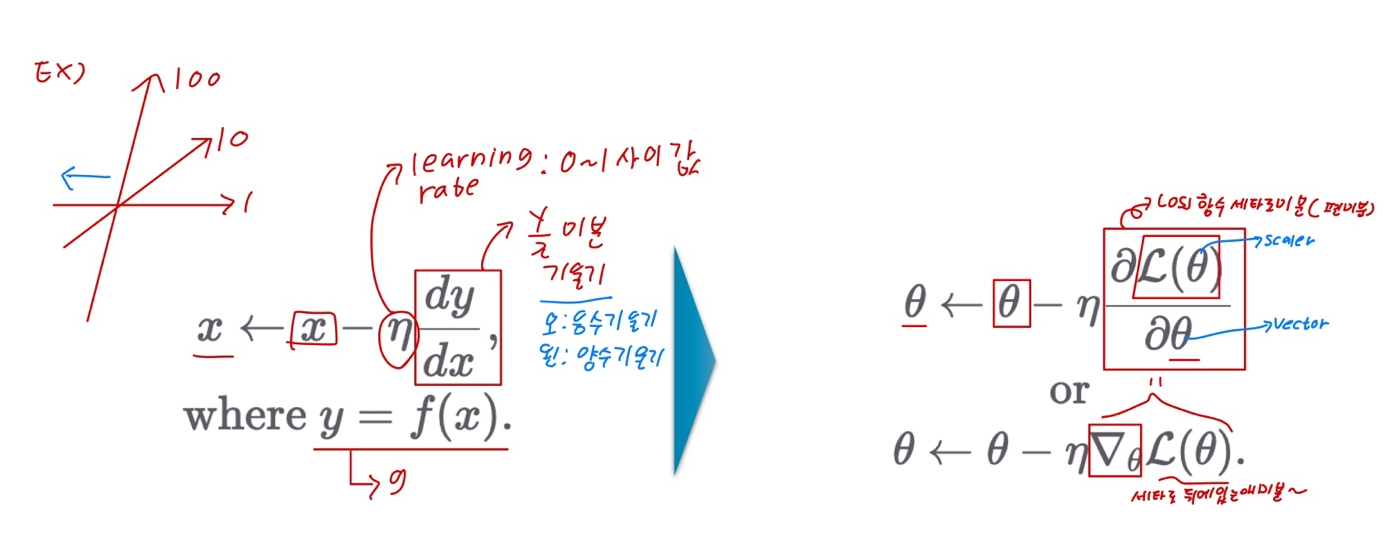 EX)
100
10
1
learning : 0~1 사이 값
rate
y/x 미분
기울기
오:음수기울기
왼:양수기울기
x ← x − η dy/dx ,
where y = f(x).
g
Loss 함수 세타로미분(편미분)
scaler
vector
θ ← θ − η ∂ℒ(θ)/∂θ
"
or
θ ← θ − η∇θℒ(θ).
세타로 뒤에있는애미분~